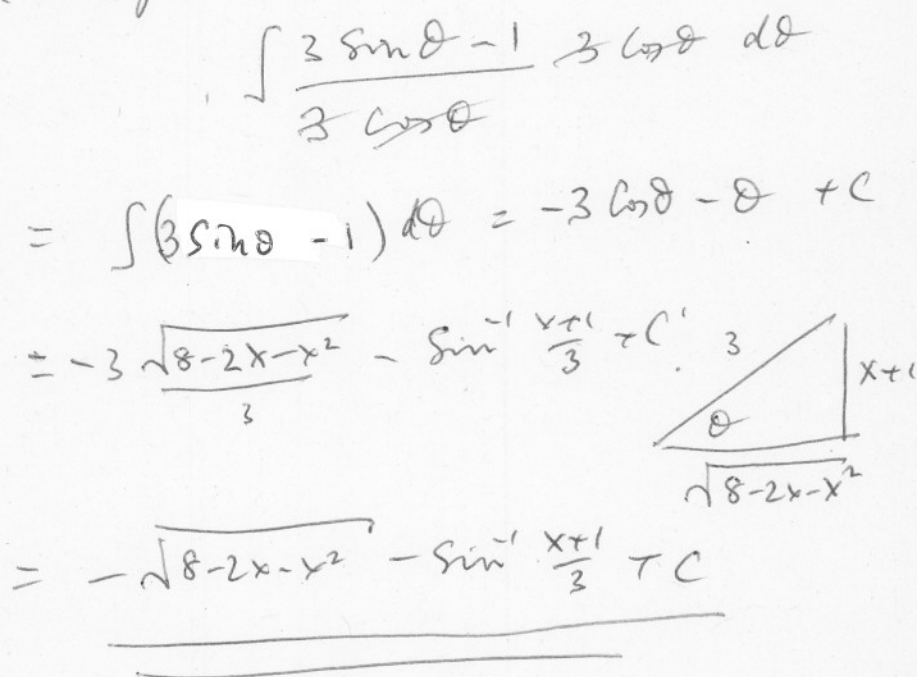 ∫ (3 sin θ - 1)/(3 cos θ) 3 cos θ dθ
= ∫(3 sin θ - 1) dθ = -3 cos θ - θ + C
= -3 √(8-2x-x²)/3 - sin⁻¹ (x+1)/3 + C'
3
x+1
θ
√(8-2x-x²)
= -√(8-2x-x²) - sin⁻¹ (x+1)/3 + C